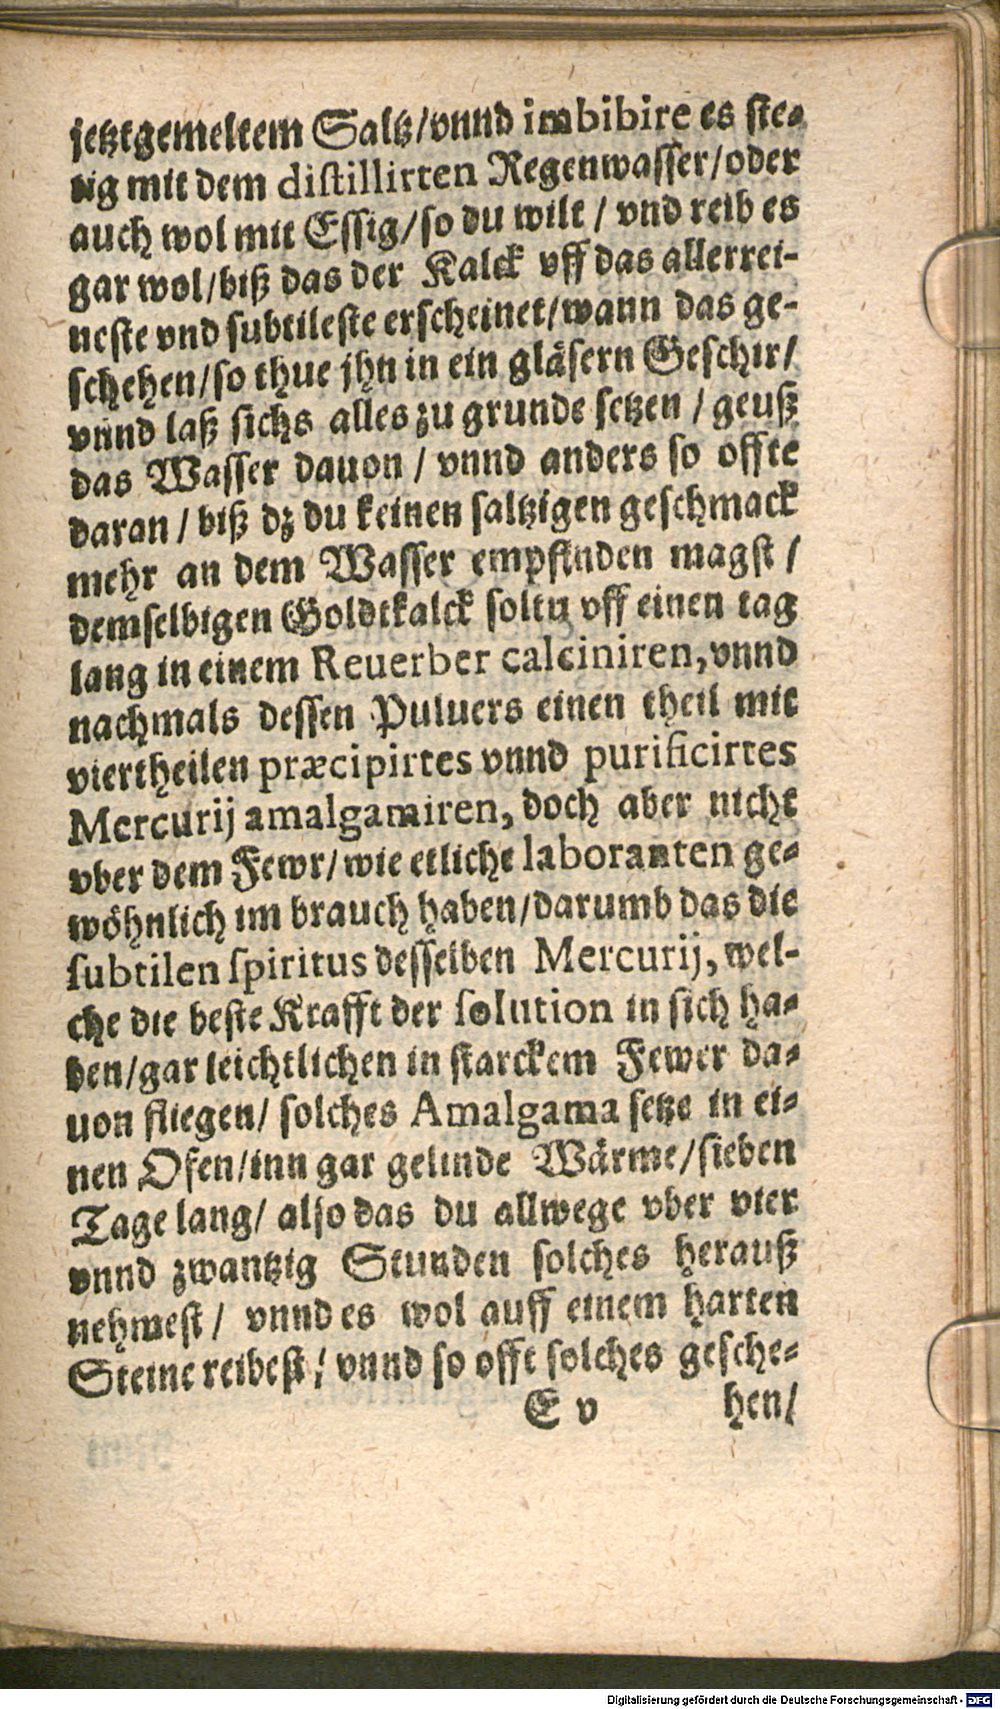 jetztgemeltem Saltz/vnnd imbibire es ste-
tig mit dem distillirten Regenwasser/oder
auch wol mit Essig/so du wilt / vnd reib es
gar wol/biß das der Kalck vff das allerrei-
neste vnd subtileste erscheinet/wann das ge-
schehen/so thue jhn in ein gläsern Geschir/
vnnd laß sichs alles zu grunde setzen / geuß
das Wasser dauon / vnnd anders so offte
daran / biß dz du keinen saltzigen geschmack
mehr an dem Wasser empfinden magst /
demselbigen Goldtkalck soltu vff einen tag
lang in einem Reuerber calciniren, vnnd
nachmals dessen Puluers einen theil mit
viertheilen præcipirtes vnnd purificirtes
Mercurij amalgamiren, doch aber nicht
vber dem Fewr/wie etliche laboranten ge-
wöhnlich im brauch haben/darumb das die
subtilen spiritus desselben Mercurij, wel-
che die beste Krafft der solution in sich ha-
ben/gar leichtlichen in starckem Fewer da-
uon fliegen/ solches Amalgama setze in ei-
nen Ofen/inn gar gelinde Wärme/sieben
Tage lang/ also das du allwege vber vier
vnnd zwantzig Stunden solches herauß
nehmest / vnnd es wol auff einem harten
Steine reibest / vnnd so offt solches gesche-
E v hen/
Digitalisierung gefördert durch die Deutsche Forschungsgemeinschaft - DFG